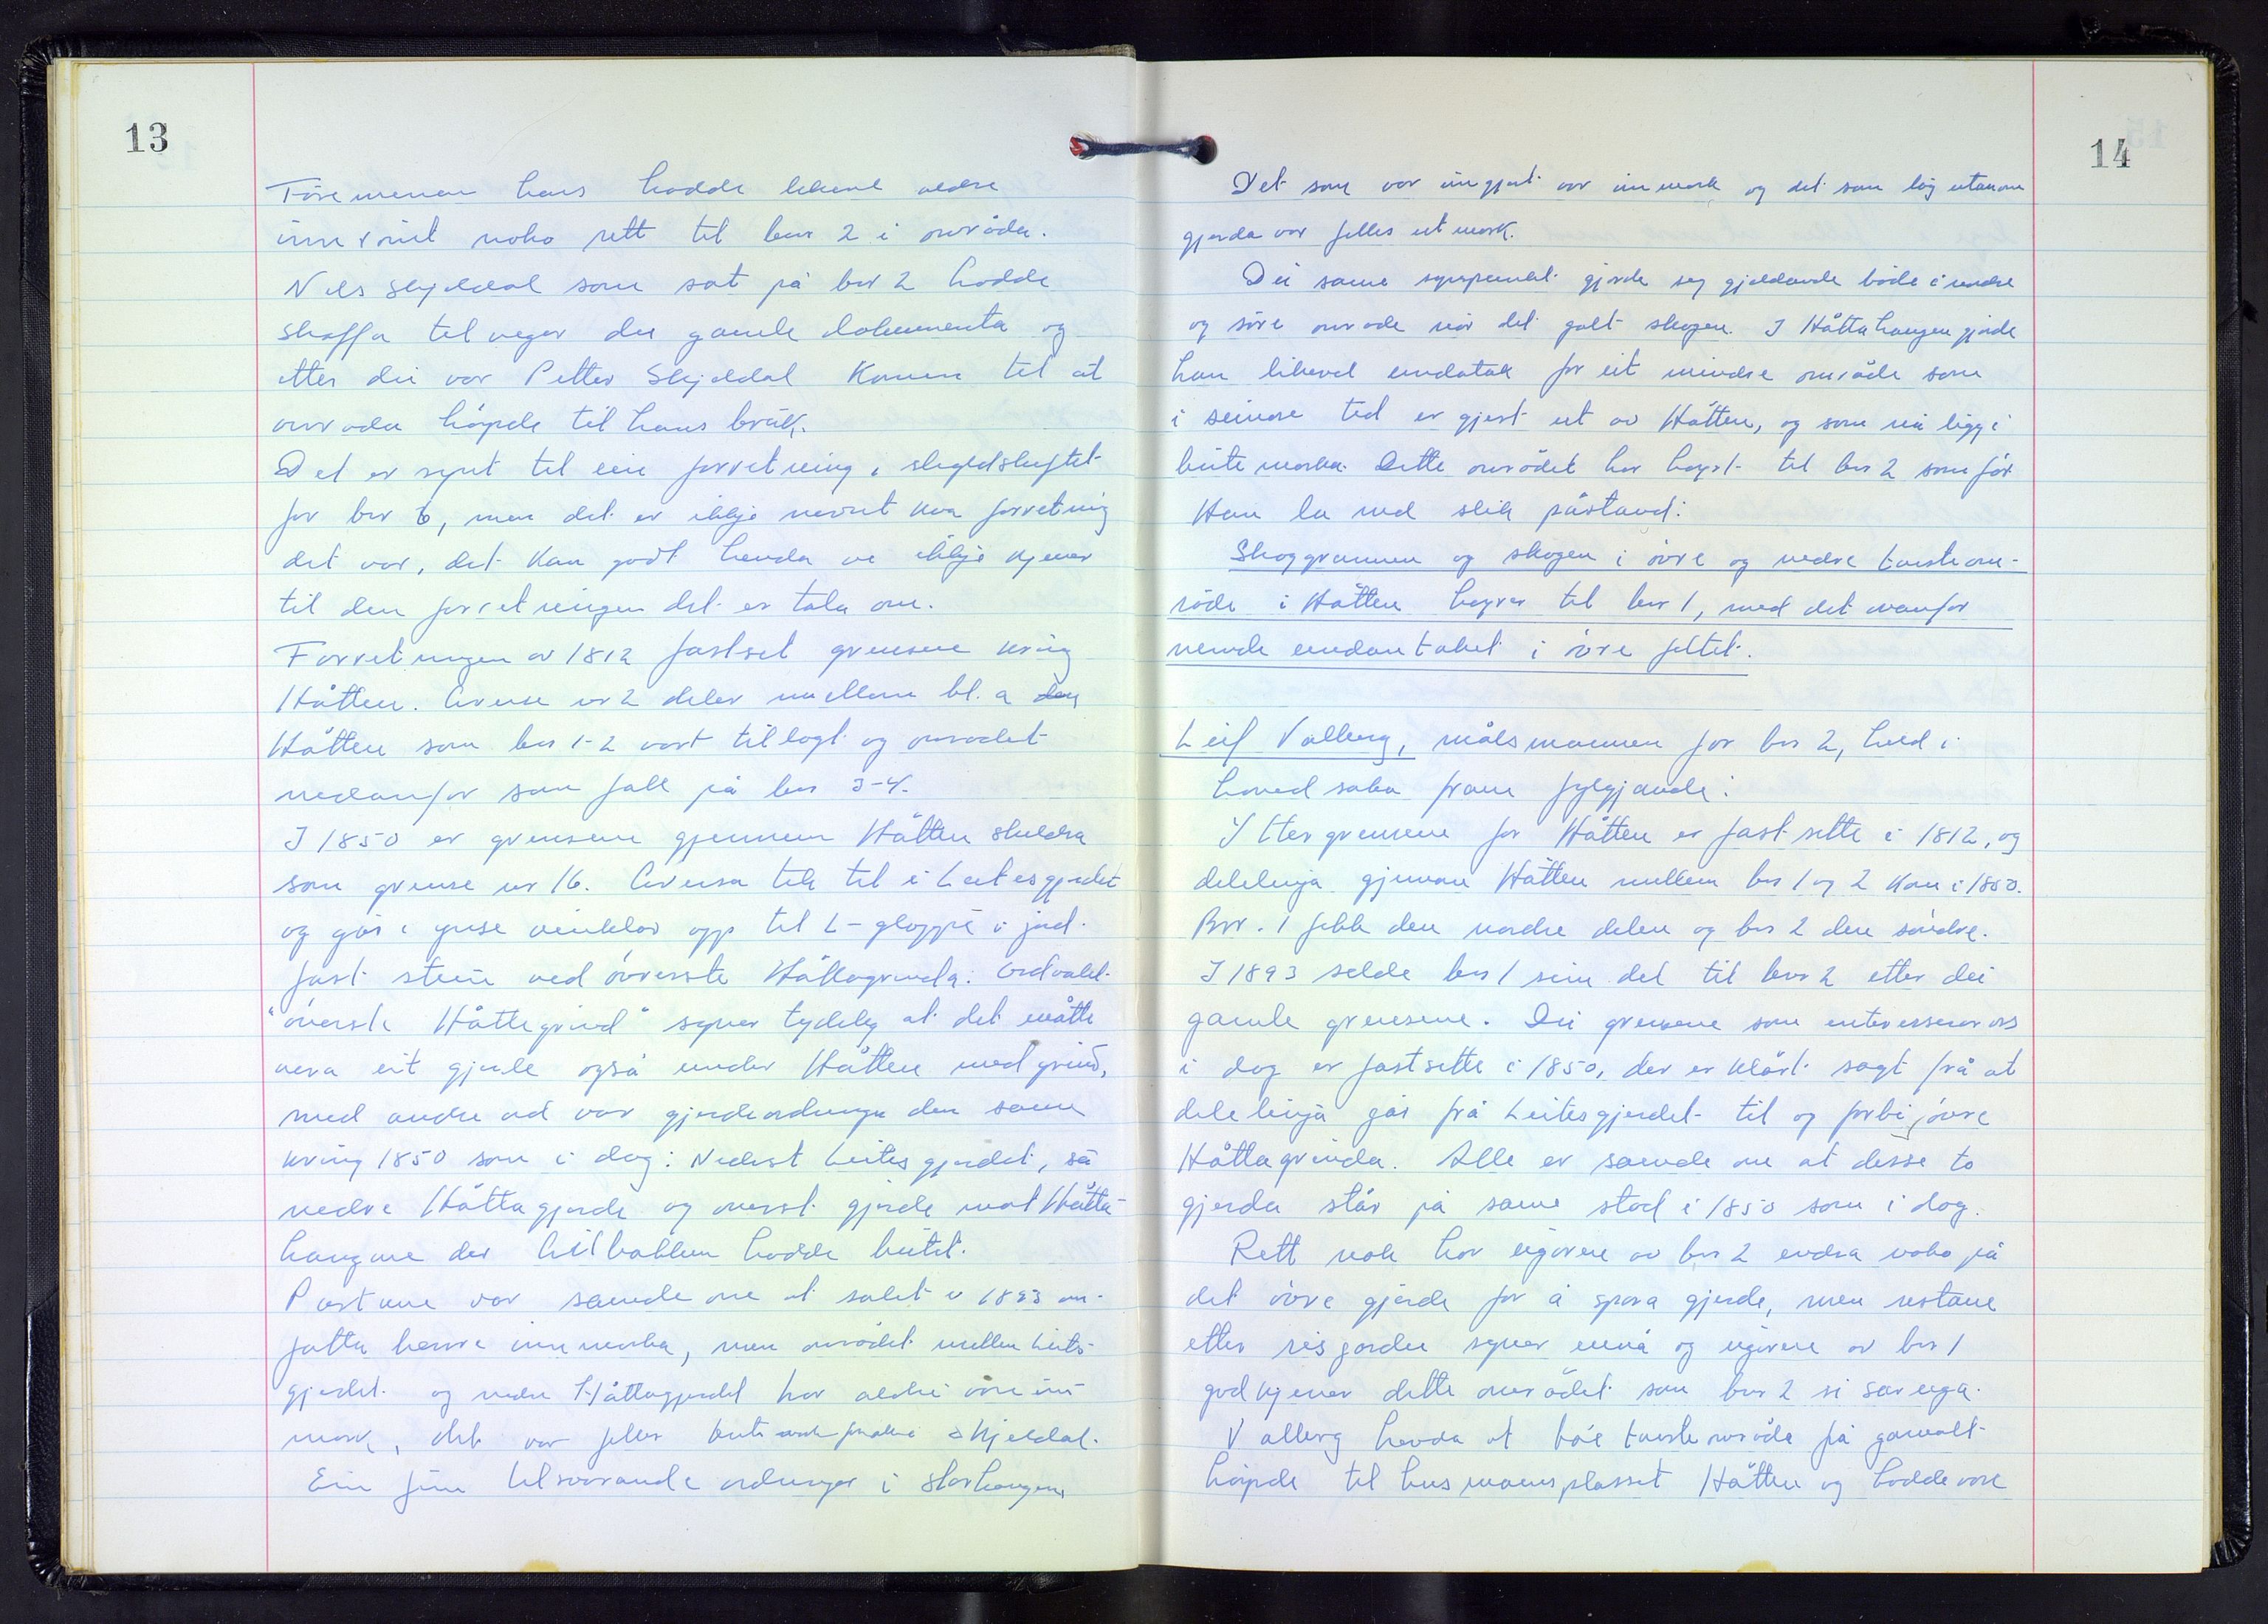 13
Føremennen hans hadde likevel aldre
innrømt noko rett til bnr 2 i områda.
Nils Skjeldal som sat på bnr 2 hadde
skaffa til vegar dei gamle dokumenta og
etter dei var Petter Skjeldal komen til at
områda høyrde til hans bruk.
Det er synt til ein forretning i skyldskiftet
for bnr 6, men det er ikkje nevnt kva forretning
det var, det kan godt henda vi ikkje kjenner
til den forretningen det er tala om.
Forretningen av 1812 fastset grensene kring
Håtten. Grense nr 2 deler mellom bl. a den
Håtten som bnr 1-2 vart tillagt og området
nedanfor som fall på bnr 3-4.
I 1850 er grensene gjennem Håtten skildra
som grense nr 16. Grensa tek til i Leitesgjerdet
og går i ymse vinklar opp til L-gloppe i jord-
fast stein ved øvreste Håttagrinda. Ordvalet
"øverste Håttegrind" syner tydeleg at det måtte
vera eit gjerde også under Håtten med grind,
med andre ord var gjerdeordninga den same
kring 1850 som i dag: Nedst Leitesgjerdet, så
nedre Håttagjerde og øverst gjerde mot Håtta-
haugane der Gilbakken hadde butet.
Partane var samde om at salet i 1893 om-
fatta berre innmarka, men området mellom Leites-
gjerdet og nedre Håttagjerdet har aldri vore inn-
mark, det var felles Skjeldal.
Ein finn tilsvarande ordningar i Storhaugen,
14
Det som var inngjert var innmark og det som låg utanom
gjerda var felles utmark.
Dei same synspunkt gjorde seg gjeldande både i nedre
og øvre område når det galt skogen. I Håttahaugen gjorde
han likevel unndatak for eit mindre område som
i seinare tid er gjert ut av Håtten, og som nå ligg i
bute marka. Dette området har høyrt til bnr 2 som før.
Han la ned slik påstand:
Skoggrunnen og skogen i øvre og nedre tvisteom-
råde i Håtten høyrer til bnr 1, med det ovanfor
nemde unndantaket i øvre feltet.
Leif Valberg, målsmannen for bnr 2, held i
hovedsaka fram fylgjande:
Yttergrensene for Håtten er fastsette i 1812, og
delelinja gjennom Håtten mellom bnr 1 og 2 kom i 1850.
Bnr. 1 fekk den nordre delen og bnr 2 den søndre.
I 1893 selde bnr 1 sin del til bnr 2 etter dei
gamle grensene. Dei grensene som interesserer oss
i dag er fastsette i 1850, der er klårt sagt frå at
delelinja går frå Leitesgjerdet til og forbi øvre
Håttagrinda. Alle er samde om at desse to
gjerda står på same stad i 1850 som i dag.
Rett nok har eigaren av bnr 2 endra noko på
det øvre gjerde for å spara gjerde, men restane
etter risgarden syner ennå og eigaren av bnr 1
godkjenner dette området som bnr 2 si særeiga.
Valberg hevda at båe tvisteområda frå gamalt
høyrde til husmannsplasset Håtten og hadde vore